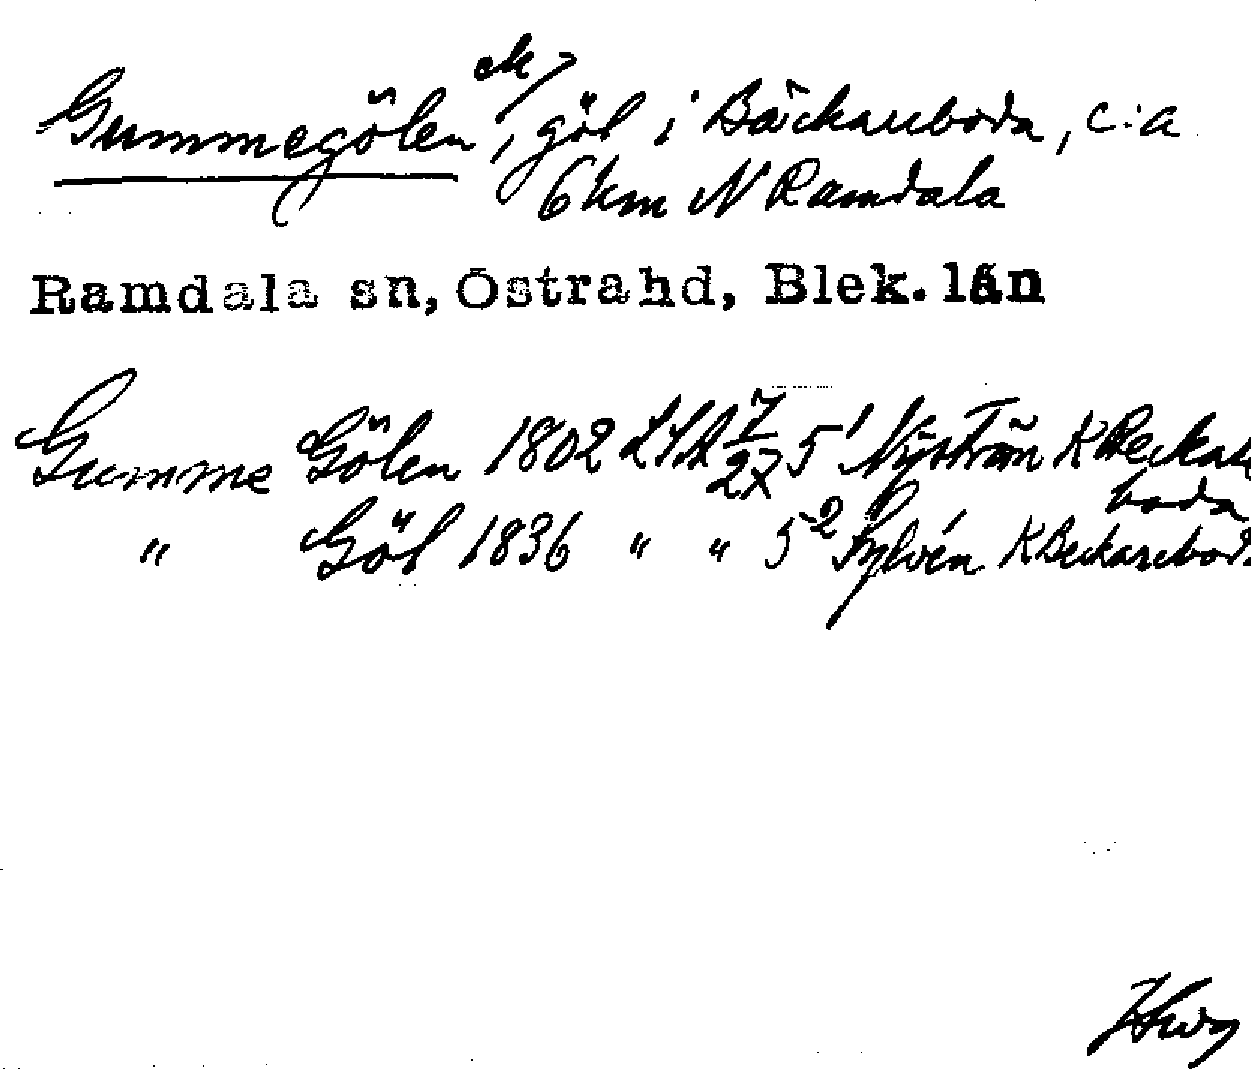 Gummegölen ek/, göl i Bäckareboda, c:a
6 km N Ramdala
Ramdala sn, Östra hd, Blek. län
Gumme Gölen 1802 LSA 7/27 5¹ Nyström K Beckare
boda
" Göl 1836 " " 5² Sylvén K Beckarebod